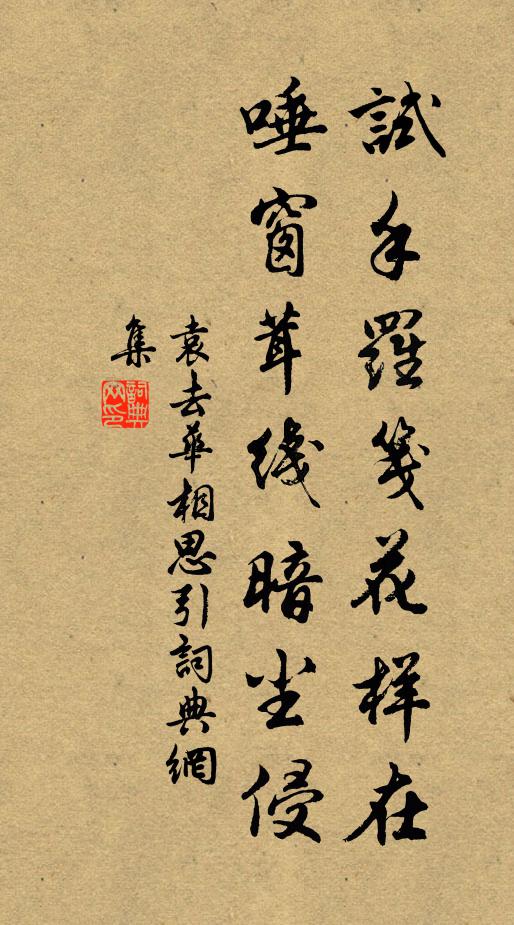 試手羅箋花样在
唾窗茸线暗尘侵
袁去華相思引詞典網
集
詞典
网印